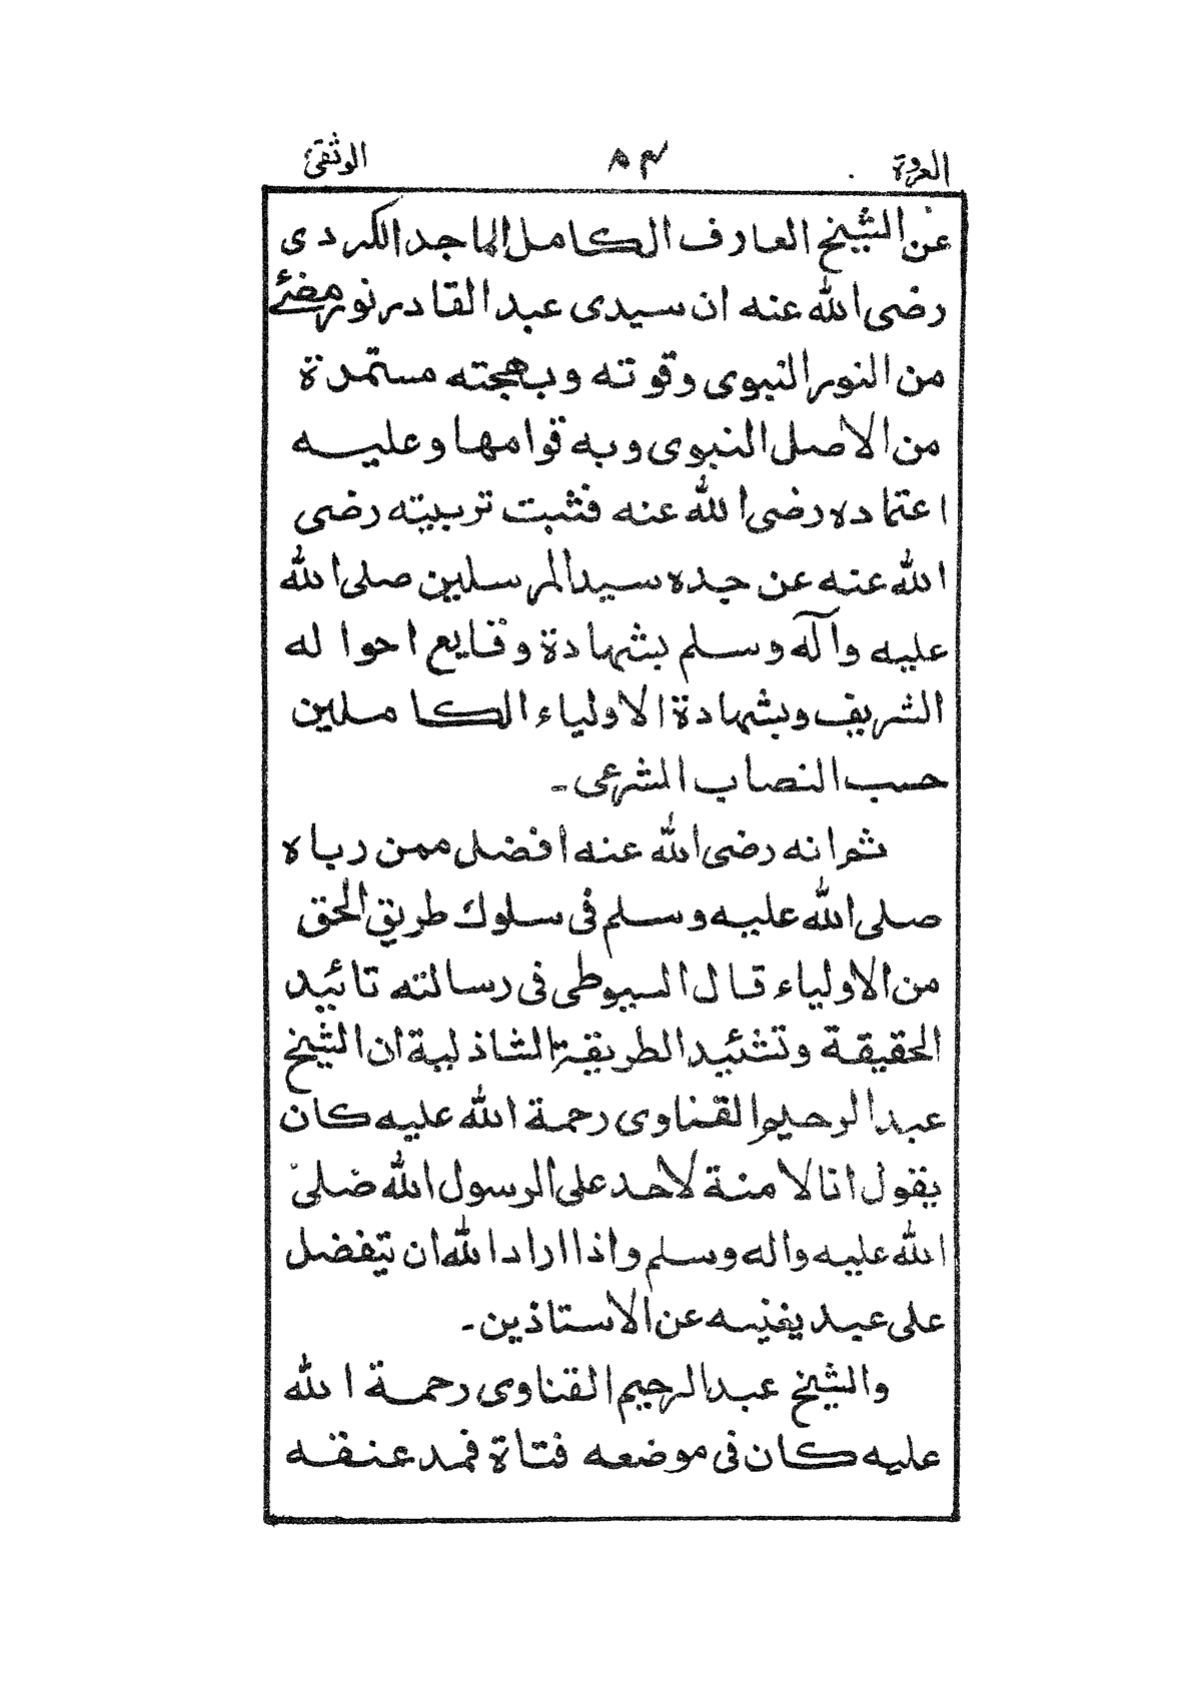 العروة ٨٣ الوثقى
عن الشيخ العارف الكامل الماجد الكردى
رضى الله عنه ان سيدى عبد القادر نور مضئ
من النور النبوى وقوته وبهجته مستمدة
من الاصل النبوى وبه قوامها وعليه
اعتماده رضى الله عنه فثبت تربيته رضى
الله عنه عن جده سيد المرسلين صلى الله
عليه وآله وسلم بشهادة وقايع احواله
الشريف وبشهادة الاولياء الكاملين
حسب النصاب الشرعى ۔
ثم انه رضى الله عنه افضل ممن رباه
صلى الله عليه وسلم فى سلوك طريق الحق
من الاولياء قال السيوطى فى رسالته تائيد
الحقيقة وتشئيد الطريقة الشاذلية ان الشيخ
عبد الرحيم القناوى رحمة الله عليه كان
يقول انا لا منة لاحد على الرسول الله صلى
الله عليه واله وسلم واذا اراد الله ان يتفضل
على عبد يغنيه عن الاستاذين ۔
والشيخ عبد الرحيم القناوى رحمة الله
عليه كان فى موضعه فتاة فمد عنقه